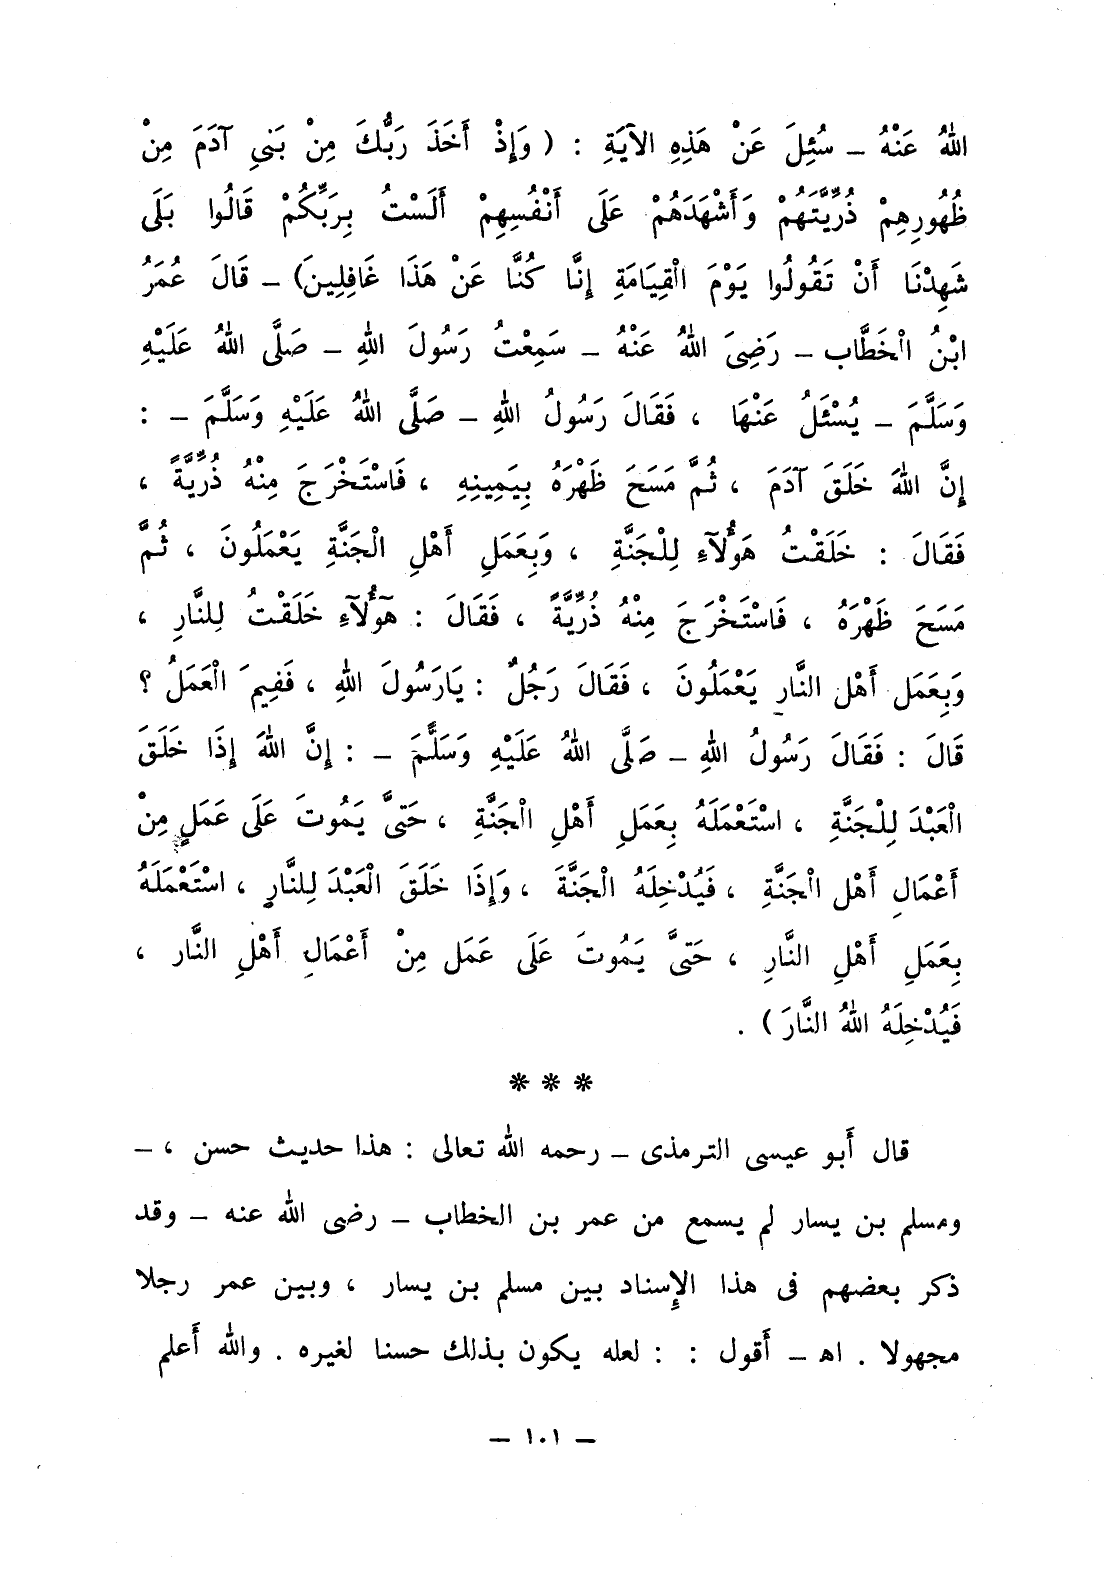 اللهُ عَنْهُ ــ سُئِلَ عَنْ هَذِهِ الآيَةِ : ( وَإِذْ أَخَذَ رَبُّكَ مِنْ بَنِي آدَمَ مِنْ
ظُهُورِهِمْ ذُرِّيَّتَهُمْ وَأَشْهَدَهُمْ عَلَى أَنْفُسِهِمْ أَلَسْتُ بِرَبِّكُمْ قَالُوا بَلَى
شَهِدْنَا أَنْ تَقُولُوا يَوْمَ الْقِيَامَةِ إِنَّا كُنَّا عَنْ هَذَا غَافِلِينَ) ــ قَالَ عُمَرُ
ابْنُ الْخَطَّابِ ــ رَضِىَ اللهُ عَنْهُ ــ سَمِعْتُ رَسُولَ اللهِ ــ صَلَّى اللهُ عَلَيْهِ
وَسَلَّمَ ــ يُسْئَلُ عَنْهَا ، فَقَالَ رَسُولُ اللهِ ــ صَلَّى اللهُ عَلَيْهِ وَسَلَّمَ ــ :
إِنَّ اللهَ خَلَقَ آدَمَ ، ثُمَّ مَسَحَ ظَهْرَهُ بِيَمِينِهِ ، فَاسْتَخْرَجَ مِنْهُ ذُرِّيَّةً ،
فَقَالَ : خَلَقْتُ هَؤُلَآءِ لِلْجَنَّةِ ، وَبِعَمَلِ أَهْلِ الْجَنَّةِ يَعْمَلُونَ ، ثُمَّ
مَسَحَ ظَهْرَهُ ، فَاسْتَخْرَجَ مِنْهُ ذُرِّيَّةً ، فَقَالَ : هَؤُلَآءِ خَلَقْتُ لِلنَّارِ ،
وَبِعَمَلِ أَهْلِ النَّارِ يَعْمَلُونَ ، فَقَالَ رَجُلٌ : يَارَسُولَ اللهِ ، فَفِيمَ الْعَمَلُ ؟
قَالَ : فَقَالَ رَسُولُ اللهِ ــ صَلَّى اللهُ عَلَيْهِ وَسَلَّمَ ــ : إِنَّ اللهَ إِذَا خَلَقَ
الْعَبْدَ لِلْجَنَّةِ ، اسْتَعْمَلَهُ بِعَمَلِ أَهْلِ الْجَنَّةِ ، حَتَّى يَمُوتَ عَلَى عَمَلٍ مِنْ
أَعْمَالِ أَهْلِ الْجَنَّةِ ، فَيُدْخِلَهُ الْجَنَّةَ ، وَإِذَا خَلَقَ الْعَبْدَ لِلنَّارِ ، اسْتَعْمَلَهُ
بِعَمَلِ أَهْلِ النَّارِ ، حَتَّى يَمُوتَ عَلَى عَمَلٍ مِنْ أَعْمَالِ أَهْلِ النَّارِ ،
فَيُدْخِلَهُ اللهُ النَّارَ ) .
* * *
قال أَبو عيسى الترمذى ــ رحمه الله تعالى : هذا حديث حسن ، ــ
ومسلم بن يسار لم يسمع من عمر بن الخطاب ــ رضى الله عنه ــ وقد
ذكر بعضهم فى هذا الإِسناد بين مسلم بن يسار ، وبين عمر رجلا
مجهولا . اهـ ــ أَقول : : لعله يكون بذلك حسنا لغيره . والله أَعلم
ــ ١٠١ ــ